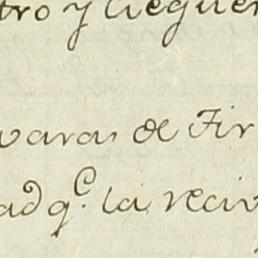 tro y lleguen
varas de Fir
ad q.e la reciv